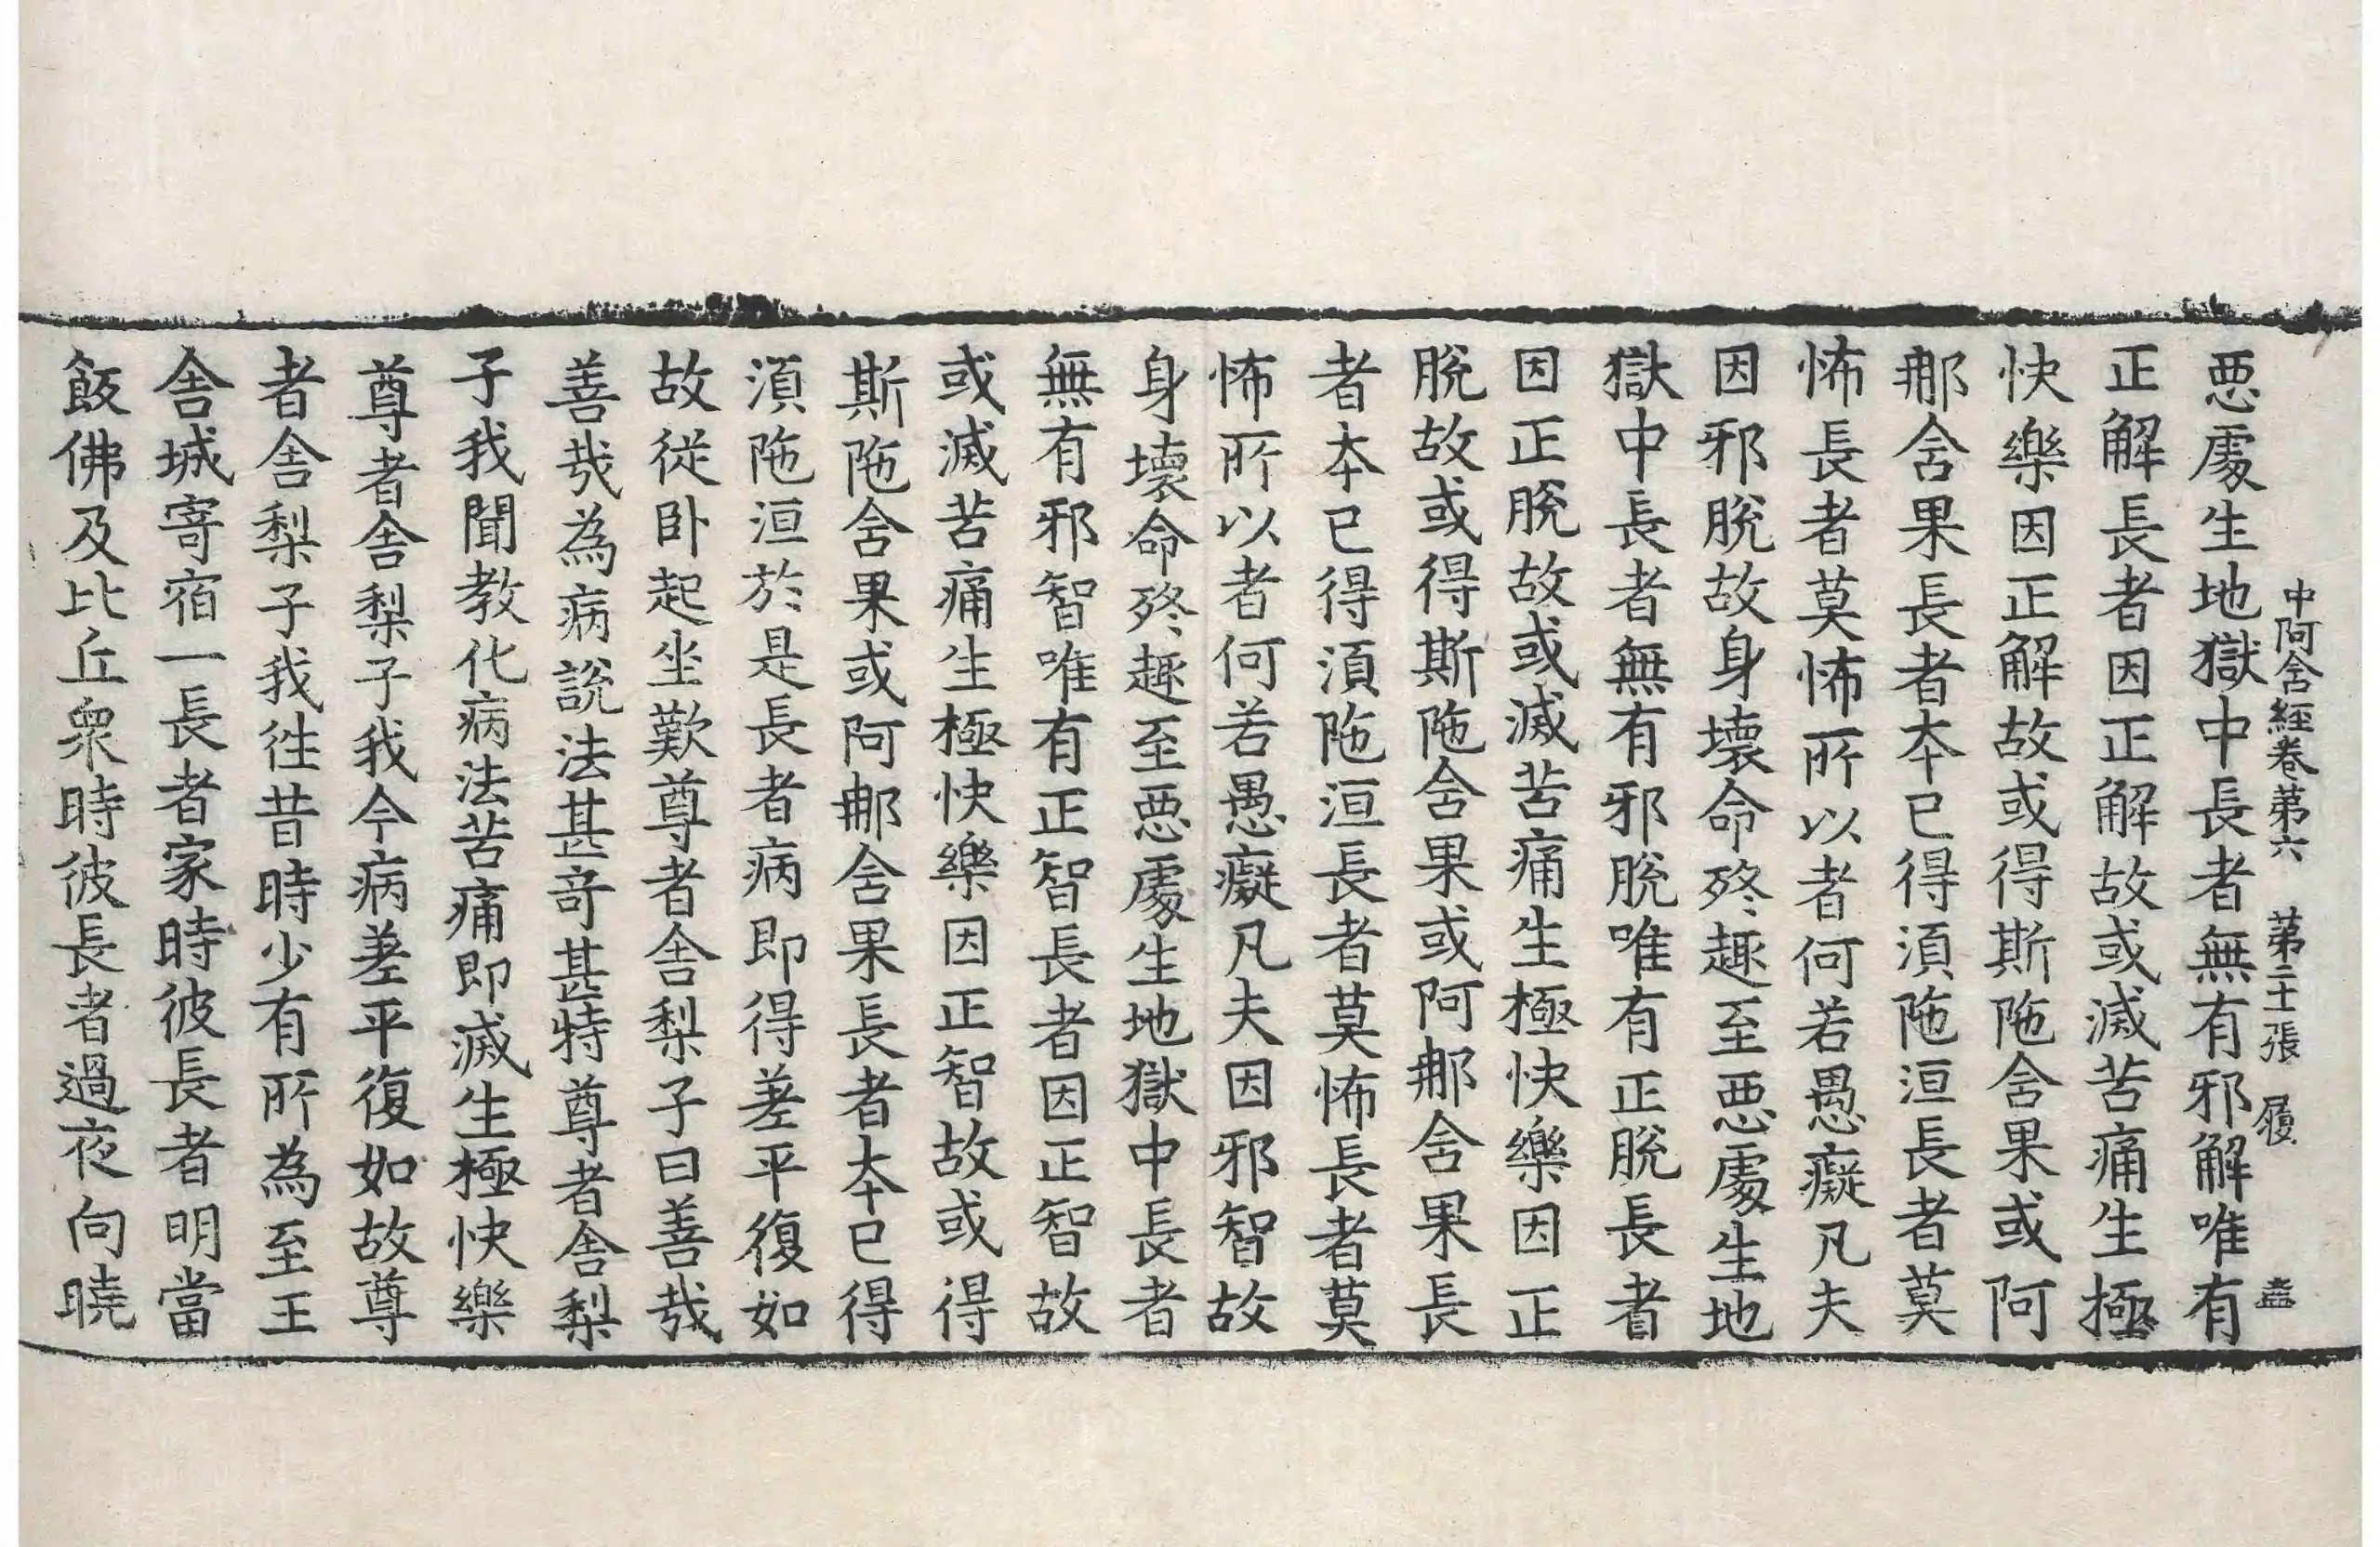 中阿含經卷第六 第二十一張 履
惡處生地獄中長者無有邪解唯有
正解長者因正解故或滅苦痛生極
快樂因正解故或得斯陁含果或阿
那含果長者本已得須陁洹長者莫
怖長者莫怖所以者何若愚癡凡夫
因邪脫故身壞命終趣至惡處生地
獄中長者無有邪脫唯有正脫長者
因正脫故或滅苦痛生極快樂因正
脫故或得斯陁含果或阿那含果長
者本已得須陁洹長者莫怖長者莫
怖所以者何若愚癡凡夫因邪智故
身壞命終趣至惡處生地獄中長者
無有邪智唯有正智長者因正智故
或滅苦痛生極快樂因正智故或得
斯陁含果或阿那含果長者本已得
須陁洹於是長者病即得差平復如
故從臥起坐歎尊者舍梨子曰善哉
善哉為病說法甚奇甚特尊者舍梨
子我聞教化病法苦痛即滅生極快樂
尊者舍梨子我今病差平復如故尊
者舍梨子我徃昔時少有所為至王
舍城寄宿一長者家時彼長者明當
飯佛及比丘眾時彼長者過夜向曉